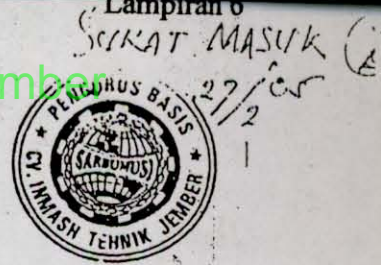 Lampiran 6
SURAT MASUK
mber
27/2 '05
PENGURUS BASIS
SARBUMUSI
CV. INMASH TEHNIK JEMBER